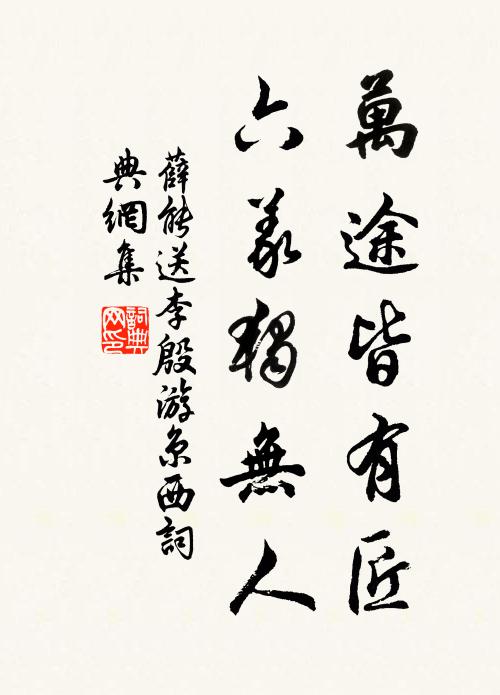 萬途皆有匠
六義獨無人
薛能送李殷游京西詞
典網集
詞典
网印